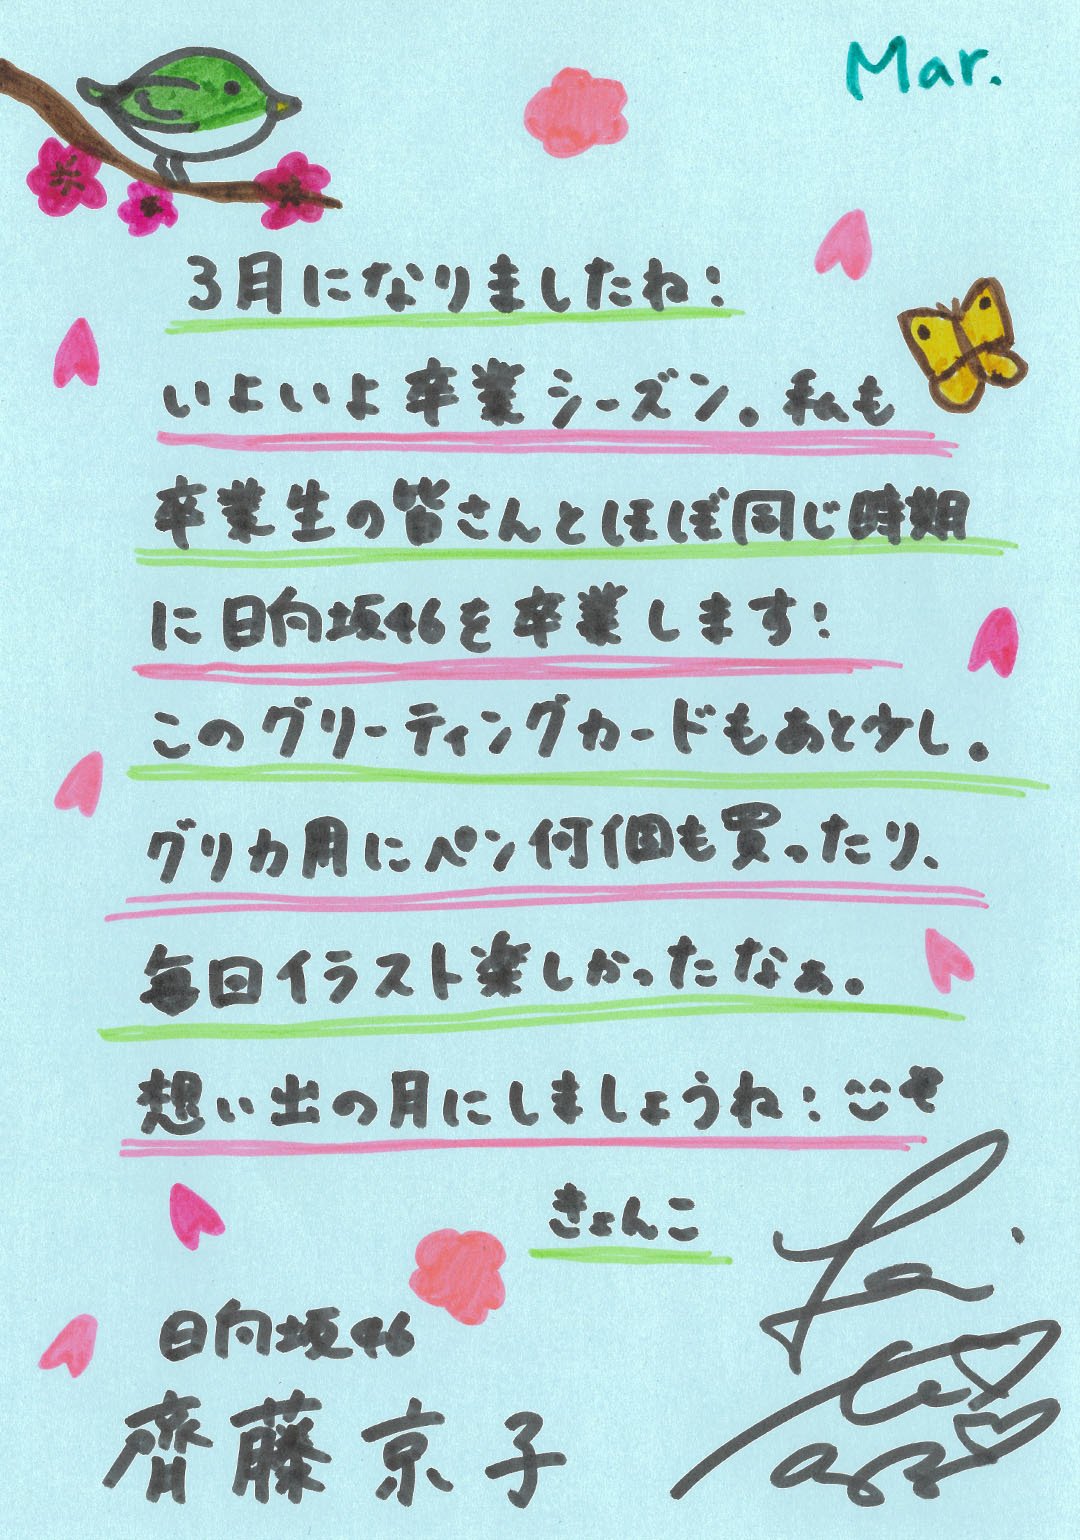 Mar.
3月になりましたね!
いよいよ卒業シーズン。私も
卒業生の皆さんとほぼ同じ時期
に日向坂46を卒業します!
このグリーティングカードもあと少し。
グリカ用にペン何個も買ったり、
毎回イラスト楽しかったなぁ。
想い出の月にしましょうね!
きょんこ
日向坂46
齊藤京子